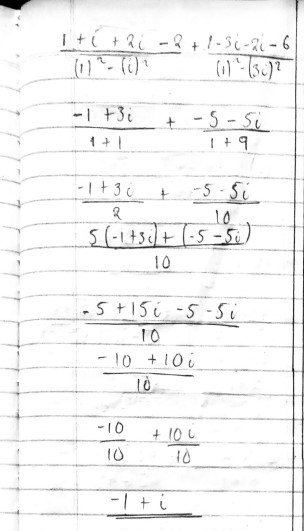 1 + i + 2i - 2 + 1 - 3i - 2i - 6
(1)² - (i)² (1)² - (3i)²
-1 + 3i + -5 - 5i
1 + 1 1 + 9
-1 + 3i + -5 - 5i
2 10
5(-1+3i) + (-5-5i)
10
-5 + 15i - 5 - 5i
10
-10 + 10i
10
-10 + 10i
10 10
-1 + i